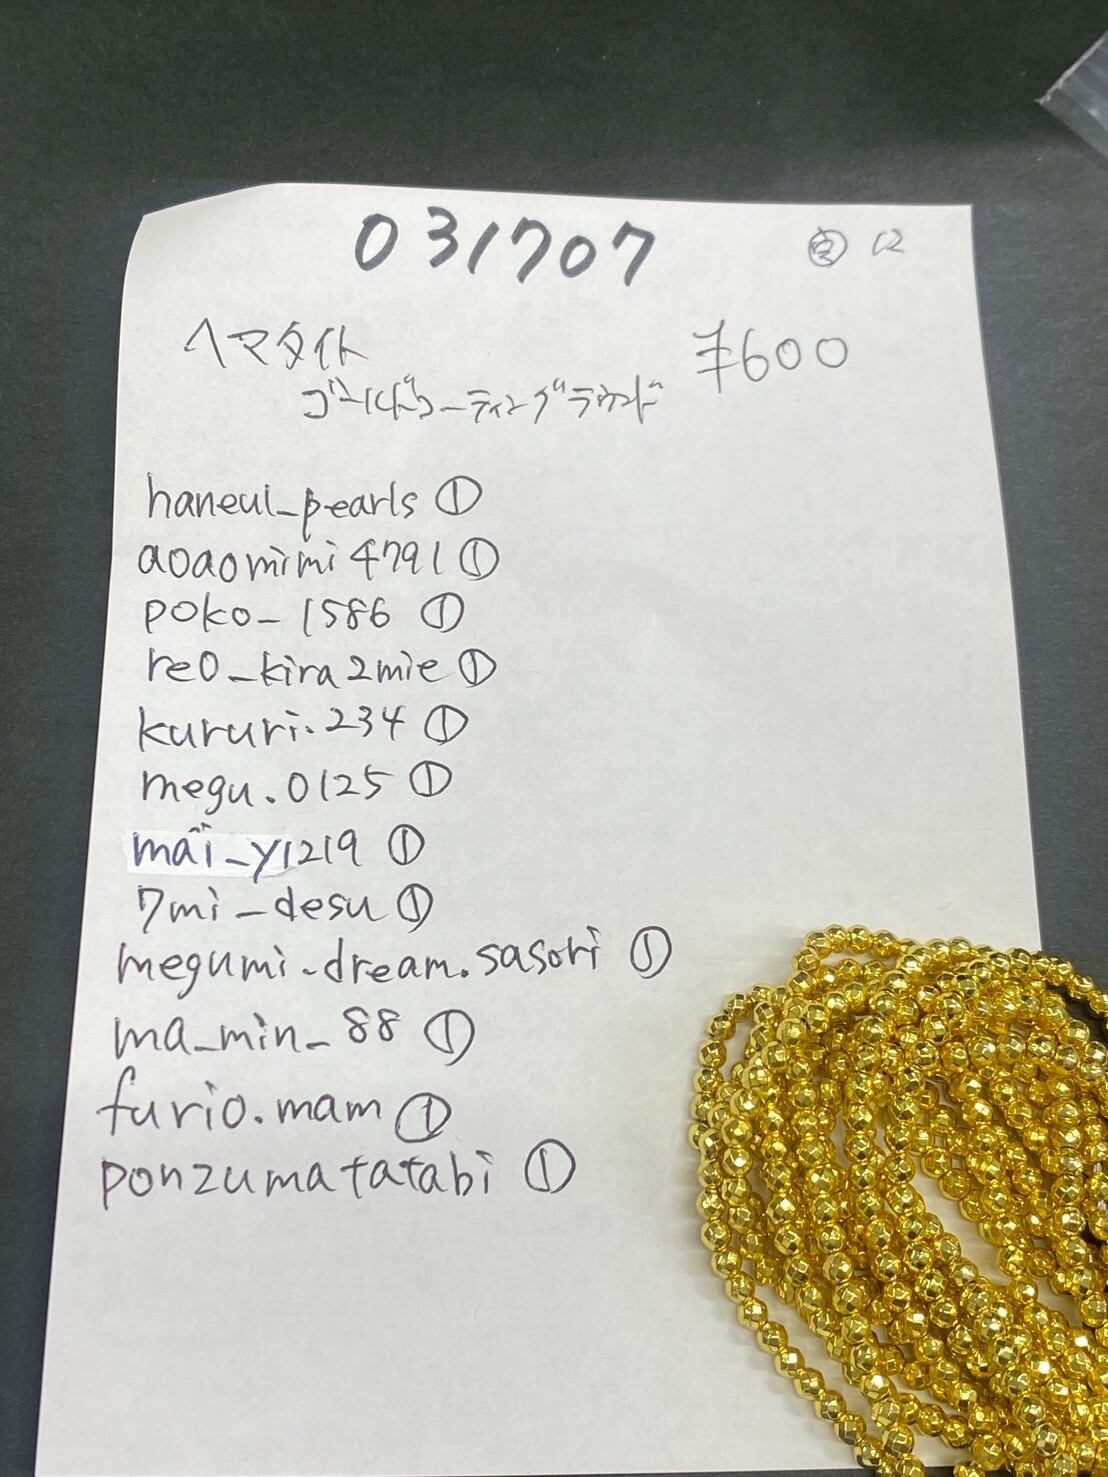 031707
12
ヘマタイト
¥600
ゴールドコーティングラウンド
haneul_pearls ①
aoaomimi4791 ①
poko_1586 ①
reo_kira2mie ①
kururi.234 ①
megu.0125 ①
mai_y1219 ①
7mi_desu ①
megumi_dream.sasori ①
ma_min_88 ①
furio.mam ①
ponzumatatabi ①